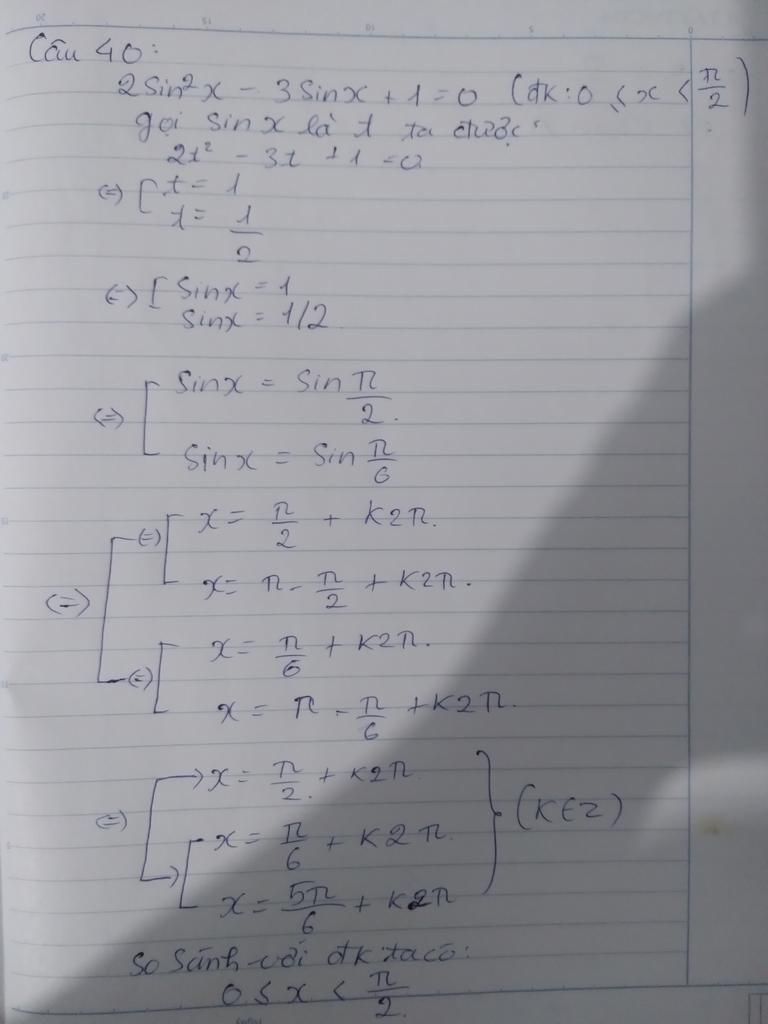 Câu 40:
2Sin²x - 3Sinx + 1 = 0 (đk: 0 ≤ x < π/2)
gọi sinx là t ta được:
2t² - 3t + 1 = 0
(=) [ t = 1
t = 1/2
(=) [ Sinx = 1
Sinx = 1/2
(=) [ Sinx = Sin π/2.
Sinx = Sin π/6
(=) [ (=) [ x = π/2 + K2π.
x = π - π/2 + K2π.
(=) [ x = π/6 + K2π.
x = π - π/6 + K2π.
(=) [ x = π/2. + K2π
[ x = π/6 + K2π. } (K∈Z)
x = 5π/6 + K2π
So Sánh với đk ta có:
0 ≤ x < π/2.